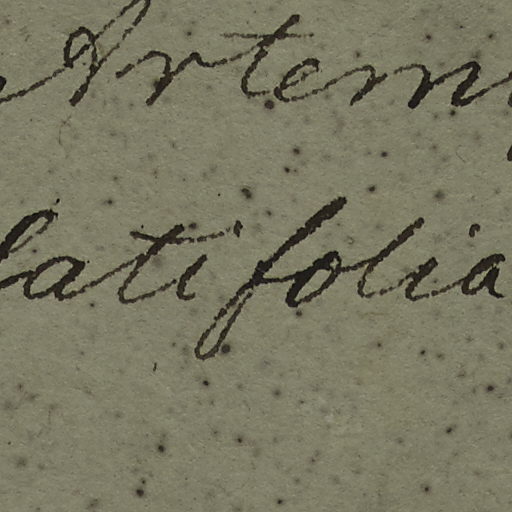 Artem
latifolia